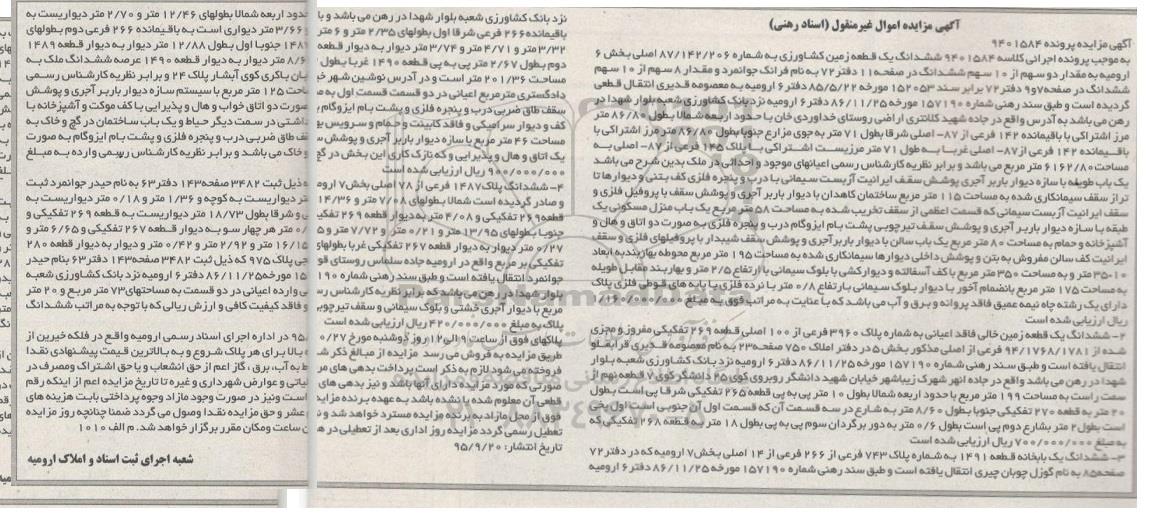 آگهی مزایده اموال غیرمنقول (اسناد رهنی)
آگهی مزایده پرونده ۹۴۰۱۵۸۴
به موجب پرونده اجرائی کلاسه ۹۴۰۱۵۸۴ ششدانگ یک قطعه زمین کشاورزی به شماره ۸۷/۱۴۲/۲۰۶ اصلی بخش ۶
ارومیه به مقدار دو سهم از ۱۰ سهم ششدانگ در صفحه ۱۱ دفتر ۷۲ به نام فرانک جوانمرد و مقدار ۸ سهم از ۱۰ سهم
ششدانگ در صفحه ۹و۷ دفتر ۷۲ برابر سند ۱۵۲۰۵۳ مورخه ۸۵/۵/۲۲ دفتر ۶ ارومیه به معصومه قدیری انتقال قطعی
گردیده است و طبق سند رهنی شماره ۱۵۷۱۹۰ مورخه ۸۶/۱۱/۲۵ دفتر ۶ ارومیه نزد بانک کشاورزی شعبه بلوار شهدا در
رهن می باشد به آدرس واقع در جاده شهید کلانتری اراضی روستای خداوردی خان با حدود اربعه شمالا بطول ۸۶/۸۰ متر
مرز اشتراکی با باقیمانده ۱۴۲ فرعی از ۸۷- اصلی شرقا بطول ۷۱ متر به جوی مزارع جنوبا بطول ۸۶/۸۰ متر مرز اشتراکی با
باقیمانده ۱۴۲ فرعی از ۸۷- اصلی غربا به طول ۷۱ متر مرزیست اشتراکی با پلاک ۱۴۵ فرعی از ۸۷- اصلی به
مساحت ۶۱۶۲/۸۰ متر مربع می باشد و برابر نظریه کارشناس رسمی اعیانهای موجود و احداثی در ملک بدین شرح می باشد
یک باب طویله با سازه دیوار باربر آجری پوشش سقف ایرانیت آزبست سیمانی با درب و پنجره فلزی کف بتنی و دیوارها تا
تراز سقف سیمانکاری شده به مساحت ۱۱۵ متر مربع ساختمان کاهدان با دیوار باربر آجری و پوشش سقف با پروفیل فلزی و
سقف ایرانیت آزبست سیمانی که قسمت اعظمی از سقف تخریب شده به مساحت ۵۸ متر مربع یک باب منزل مسکونی یک
طبقه با سازه دیوار باربر آجری و پوشش سقف تیر چوبی پشت بام ایزوگام درب و پنجره فلزی به صورت دو اتاق و هال و
آشپزخانه و حمام به مساحت ۸۰ متر مربع یک باب سالن با دیوار باربر آجری و پوشش سقف شیبدار با پروفیلهای فلزی و سقف
ایرانیت کف سالن مفروش به بتن و پوشش داخلی دیوارها سیمانکاری شده به مساحت ۱۹۵ متر مربع محوطه بهاربند به ابعاد
۱۰-۳۵ متر و به مساحت ۳۵۰ متر مربع با کف آسفالته و دیوارکشی با بلوک سیمانی با ارتفاع ۲/۵ متر و بهاربند مقابل طویله
به مساحت ۱۷۵ متر مربع بانضمام آخور با دیوار بلوک سیمانی با ارتفاع ۰/۸ متر با نرده فلزی با پایه های قوطی فلزی پلاک
دارای یک رشته چاه نیمه عمیق فاقد پروانه و برق و آب می باشد که با عنایت به مراتب فوق به مبلغ
ریال ارزیابی شده است
۲- ششدانگ یک قطعه زمین خالی فاقد اعیانی به شماره پلاک ۳۹۶۰ فرعی از ۱۰۰ اصلی قطعه ۲۶۹ تفکیکی مفروز و مجزی
شده از ۹۴/۱۷۶۸/۱۷۸۱ فرعی از اصلی مذکور بخش ۵ در دفتر املاک ۷۵۰ صفحه ۲۳ به نام معصومه قدیری قرابقلو
انتقال یافته است و طبق سند رهنی شماره ۱۵۷۱۹۰ مورخه ۸۶/۱۱/۲۵ دفتر ۶ ارومیه نزد بانک کشاورزی شعبه بلوار
شهدا در رهن می باشد واقع در جاده انهر شهرک زیباشهر خیابان شهید دانشگر روبروی کوی ۲۵ دانشگر کوی ۷ قطعه نهم از
سمت راست به مساحت ۱۹۹ متر مربع با حدود اربعه شمالا بطول ۱۰ متر پی به پی قطعه ۲۶۵ تفکیکی شرقا پی است بطول
۲۰ متر به قطعه ۲۷۰ تفکیکی جنوبا بطول ۸/۶۰ متر به شارع در سه قسمت آن که قسمت اول آن جنوبی است اول پخی
است بطول ۲ متر بشارع دوم پی است بطول ۰/۶ متر به دور برگردان سوم پی به پی بطول ۱۸ متر به قطعه ۲۶۸ تفکیکی که
به مبلغ ۷۰۰/۰۰۰/۰۰۰ ریال ارزیابی شده است
۳- ششدانگ یک بابخانه قطعه ۱۴۹۱ به شماره پلاک ۷۴۳ فرعی از ۲۶۶ فرعی از ۱۴ اصلی بخش ۷ ارومیه که در دفتر ۷۲
صفحه ۸۵ به نام گوزل چوبان چیری انتقال یافته است و طبق سند رهنی شماره ۱۵۷۱۹۰ مورخه ۸۶/۱۱/۲۵ دفتر ۶ ارومیه
نزد بانک کشاورزی شعبه بلوار شهدا در رهن می باشد و با
باقیمانده ۲۶۶ فرعی شرقا اول بطولهای ۲/۳۵ متر و ۶ متر
۳/۳۲ متر و ۴/۷۱ متر و ۳/۷۴ متر دیوار به دیوار قطعه
دوم بطول ۲/۶۷ متر پی به پی قطعه ۱۴۹۰ غربا بطول
مساحت ۲۰۱/۳۶ متر است و در آدرس نوشین شهر خیابان
دادگستری متر مربع اعیانی در دو قسمت قسمت اول به
سقف طاق ضربی درب و پنجره فلزی و پشت بام ایزوگام
کف و دیوار سرامیکی و فاقد کابینت و حمام و سرویس
مساحت ۴۶ متر مربع با سازه دیوار باربر آجری و پوشش
یک اتاق و هال و پذیرایی و که نازک کاری این بخش در گچ
۹۰۰/۰۰۰/۰۰۰ ریال ارزیابی شده است
۴- ششدانگ پلاک ۱۴۸۷ فرعی از ۷۸ اصلی بخش ۷
و صادر گردیده است شمالا بطولهای ۷/۰۸ متر و ۱۴/۳۶
قطعه ۲۶۹ تفکیکی و ۴/۰۸ متر به دیوار قطعه ۲۶۹
جنوبا بطولهای ۱۳/۹۵ متر و ۰/۲۱ متر و ۷/۷۲ متر و
۰/۲۷ متر دیوار به دیوار قطعه ۲۶۷ تفکیکی غربا بطولهای
تفکیکی بر مربع واقع در ارومیه جاده سلماس روستای
جوانمرد انتقال یافته است و طبق سند رهنی شماره
بلوار شهدا در رهن می باشد که برابر نظریه کارشناس
مربع با دیوار آجری خشتی و بلوک سیمانی و سقف تیرچوبی
پلاک به مبلغ ۴۲۰/۰۰۰/۰۰۰ ریال ارزیابی شده است
پلاکهای فوق از ساعت ۹ الی ۱۲ روز دوشنبه مورخ
طریق مزایده به فروش می رسد مزایده از مبالغ ذکر
فروخته می شود لازم به ذکر است پرداخت بدهی های
صورتی که مورد مزایده دارای آنها باشد و نیز بدهی های
قطعی آن معلوم شده یا نشده باشد به عهده برنده مزایده
فوق از محل مازاد به برنده مزایده مسترد خواهد شد و
تعطیل رسمی گردد مزایده روز اداری بعد از تعطیلی در
تاریخ انتشار: ۹۵/۹/۲۰
حدود اربعه شمالا بطولهای ۱۲/۴۶ متر و ۲/۷۰ متر دیواریست به
و ۳/۶۶ متر دیواری است به باقیمانده ۲۶۶ فرعی دوم بطولهای
جنوبا اول بطول ۱۲/۸۸ متر دیوار به دیوار قطعه ۱۴۸۹
۸/۶۰ متر دیوار به دیوار قطعه ۱۴۹۰ عرصه ششدانگ ملک به
باکری کوی آبشار پلاک ۲۴ و برابر نظریه کارشناس رسمی
مساحت ۱۲۵ متر مربع با سیستم سازه دیوار باربر آجری و پوشش
صورت دو اتاق خواب و هال و پذیرایی با کف موکت و آشپزخانه با
داشتی در سمت دیگر حیاط و یک باب ساختمان در گچ و خاک به
سقف طاق ضربی درب و پنجره فلزی و پشت بام ایزوگام به صورت
و خاک می باشد و برابر نظریه کارشناس رسمی وارده به مبلغ
ذیل ثبت ۳۴۸۲ صفحه ۱۴۳ دفتر ۶۳ به نام حیدر جوانمرد ثبت
متر دیواریست به کوچه و ۱/۳۶ متر و ۰/۱۸ متر دیواریست به
و شرقا بطول ۱۸/۷۳ متر دیواریست به قطعه ۲۶۹ تفکیکی و
متر هر چهار سو به دیوار قطعه ۲۶۷ تفکیکی و ۶/۶۵ متر و
۱۶/۱۵ متر و ۲/۹۲ متر و ۰/۴۲ متر و دیوار به دیوار قطعه ۲۸۰
پلاک ۹۷۵ که ذیل ثبت ۳۴۸۲ صفحه ۱۴۳ دفتر ۶۳ بنام حیدر
مورخه ۸۶/۱۱/۲۵ دفتر ۶ ارومیه نزد بانک کشاورزی شعبه
وارده اعیانی در دو قسمت به مساحتهای ۷۳ متر مربع و ۲۰ متر
و فاقد کیفیت کافی و ارزش ریالی که با توجه به مراتب ششدانگ
در اداره اجرای اسناد رسمی ارومیه واقع در فلکه خیرین از
بالا برای هر پلاک شروع و به بالاترین قیمت پیشنهادی نقدا
به آب، برق، گاز اعم از حق انشعاب و یا حق اشتراک ومصرف در
مالیاتی و عوارض شهرداری و غیره تا تاریخ مزایده اعم از اینکه رقم
است ونیز در صورت وجود مازاد وجوه پرداختی بابت هزینه های
عشر و حق مزایده نقدا وصول می گردد ضمنا چنانچه روز مزایده
ساعت ومکان مقرر برگزار خواهد شد. م الف ۱۰۱۰
شعبه اجرای ثبت اسناد و املاک ارومیه